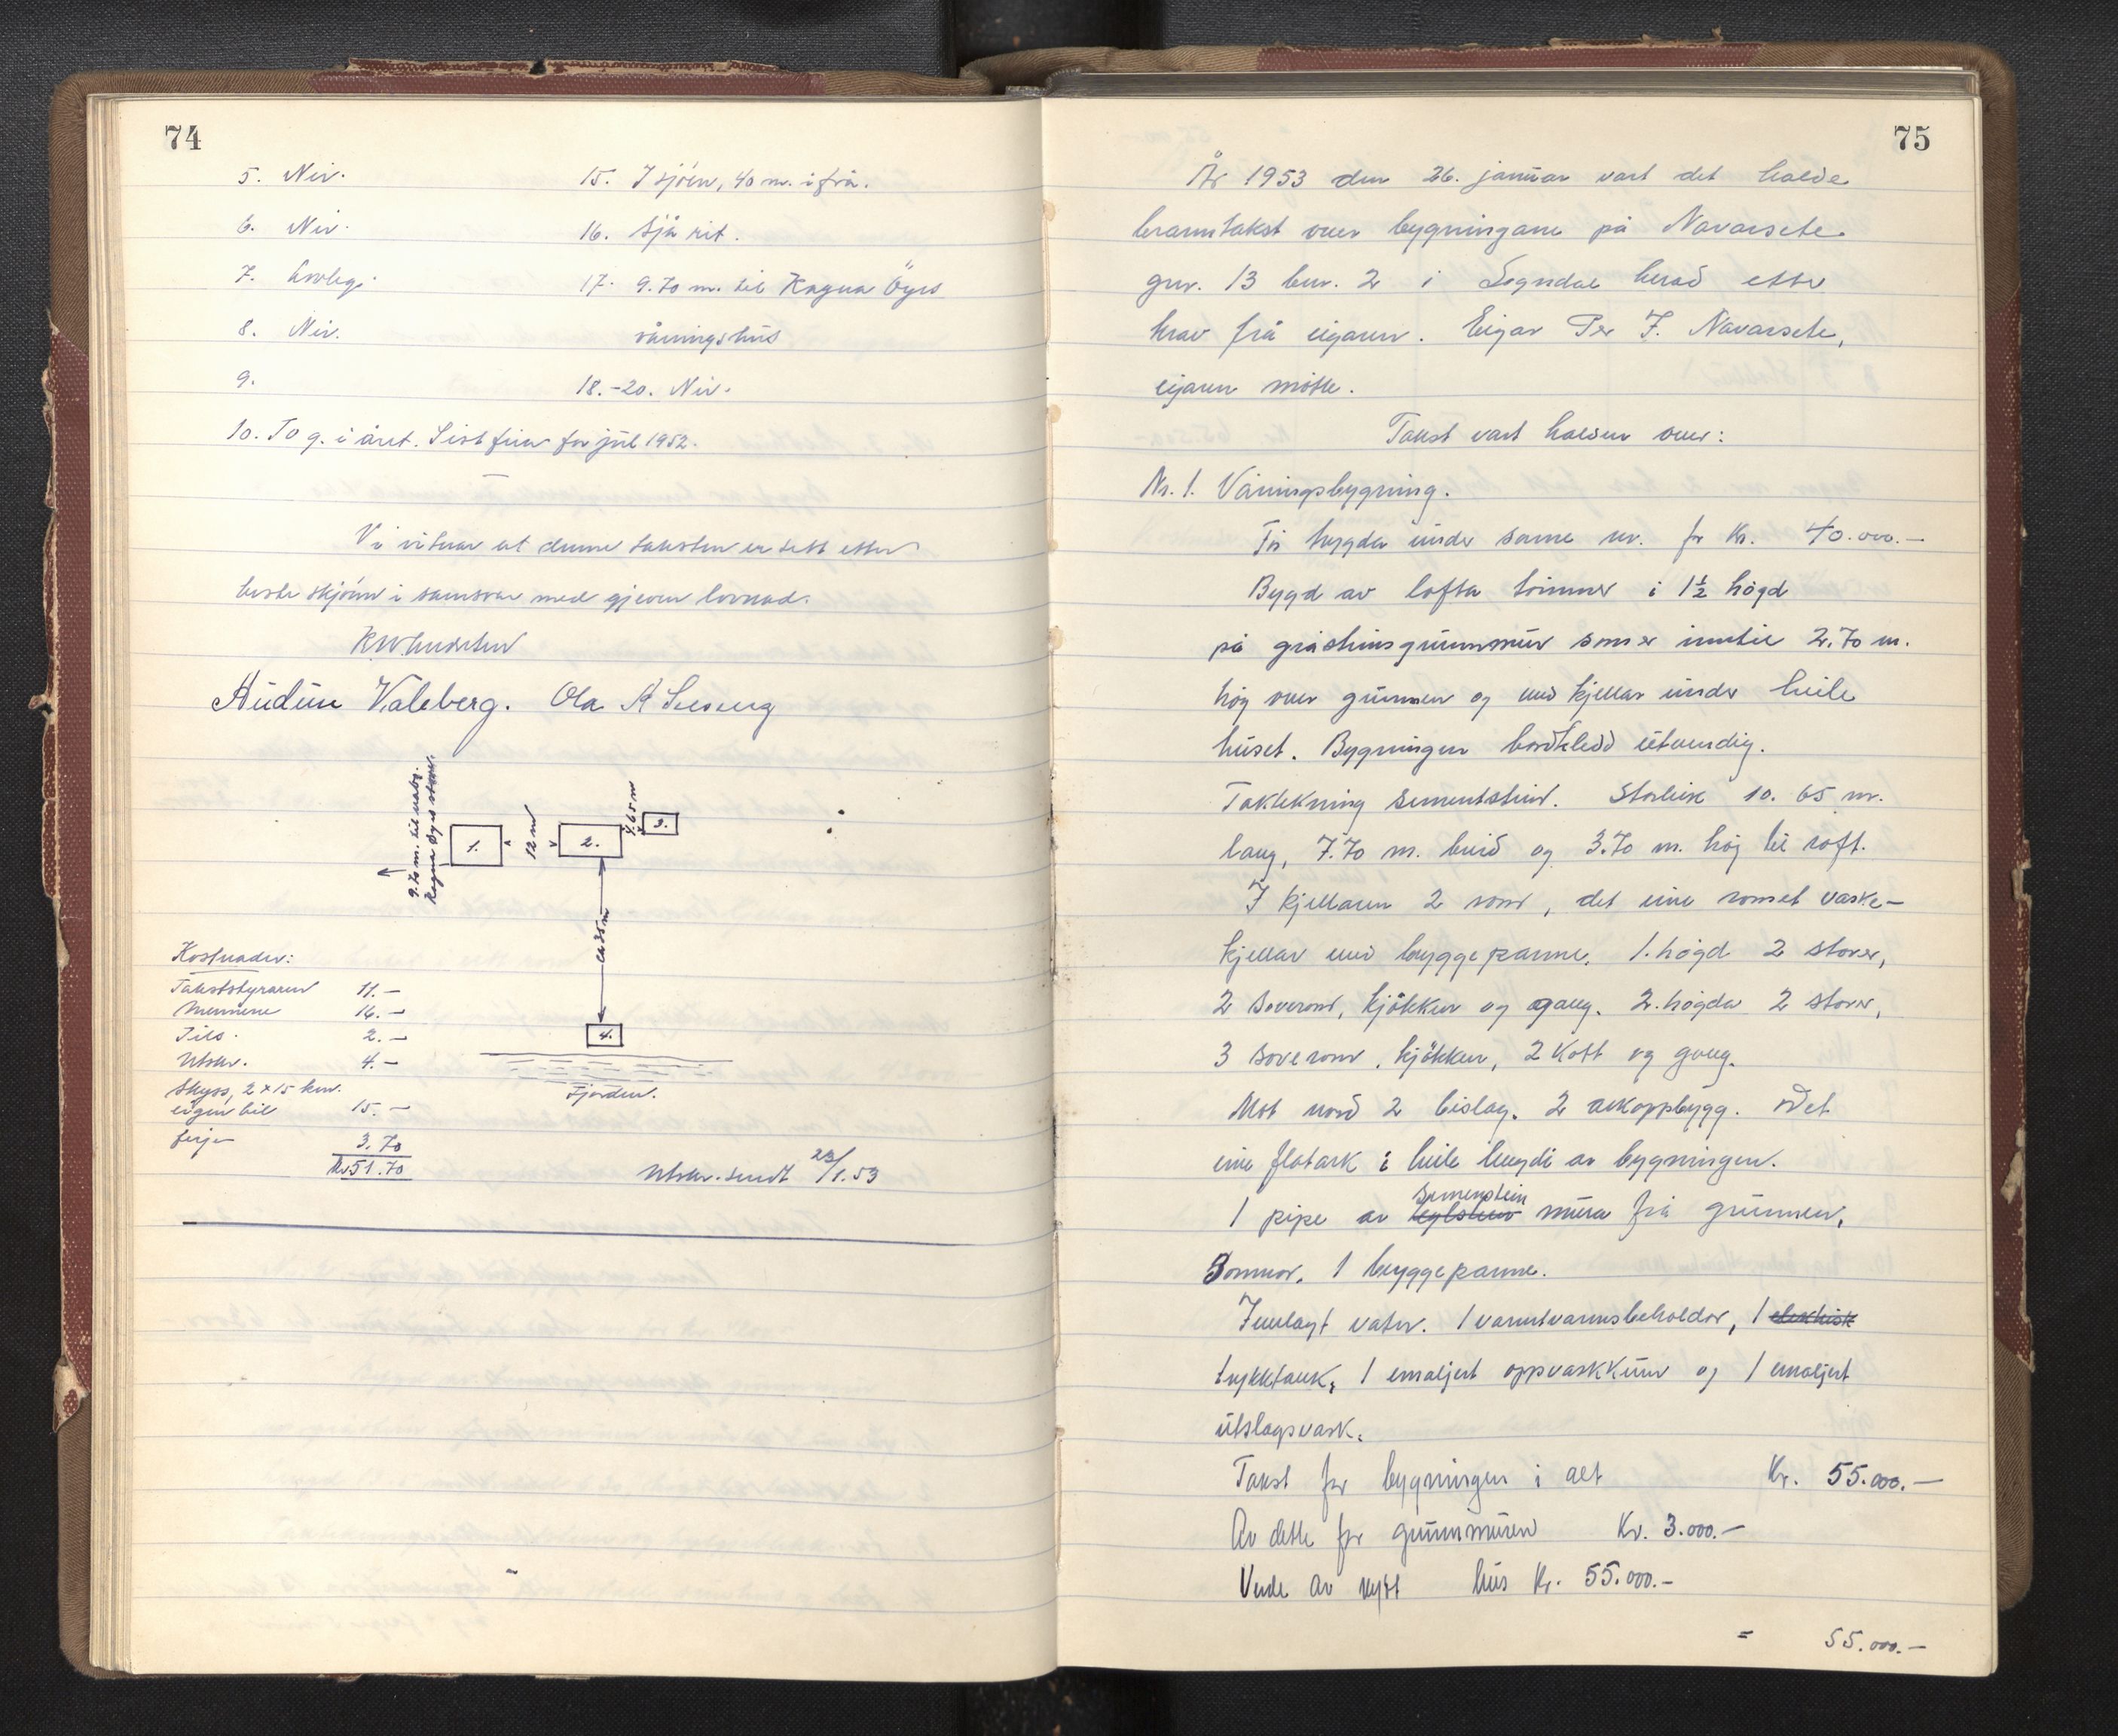 74
5. Nei.
6. Nei.
7. Lovleg.
8. Nei.
9.
10. To g. i året. Sist feia för jul 1952.
15. I sjöen, 40 m. ifrå.
16. Sjå rit.
17. 9.70 m. til Ragna Öyes
våningshus
18.-20. Nei.
Vi vitnar at denne taksten er sett etter
beste skjönn i samsvar med gjeven lovnad.
Audun Valeberg. Ola A
9.70 m. til nabo.
Ragna Öyes
1.
12 m
2.
3.
ca 35 m
4.
Fjorden.
Kostnader:
Takststyraren 11.-
Mennene 16.-
Tils. 2.-
Utskr. 4.-
Skyss, 2 x 15 km.
eigen bil 15.-
ferje 3.70
Kr 51.70
Utskr. sendt 23/1.53
75
År 1953 den 26. januar vart det halde
branntakst over bygningane på Navarsete
gnr. 13 bnr. 2 i Sogndal herad etter
krav frå eigaren. Eigar Per J. Navarsete,
eigaren mötte.
Takst vart halden over:
Nr. 1. Våningsbygning.
För bygda under same nr. for Kr. 40.000.-
Bygd av lofta tömmer i 1½ högd
på gråsteinsgrunnmur som er inntil 2.70 m.
hög over grunnen og med kjellar under heile
huset. Bygningen bordkledd utvendig.
Taktekning sementstein. Storleik 10.65 m.
lang, 7.70 m. breid og 3.70 m. hög til röft.
I kjellaren 2 rom, det eine romet vaske-
kjellar med bryggepanne. 1. högd 2 stover,
2 soverom, kjökken og gang. 2. högda 2 stover,
3 soverom, kjökken, 2 kott og gang.
Mot nord 2 bislag. 2 arkoppbygg. Det
eine flatark i heile lengdi av bygningen.
sementstein
1 pipe av teglstein mura frå grunnen.
3 omnar. 1 bryggepanne.
Innlagt vatn. 1 varmtvannsbeholdar, 1 elektrisk
trykktank, 1 emaljert oppvaskkum og 1 emaljert
utslagsvask.
Takst for bygningen i alt Kr. 55.000.-
Av dette for grunnmuren Kr. 3.000.-
Verde av nytt hus Kr. 55.000.-
= 55.000.-